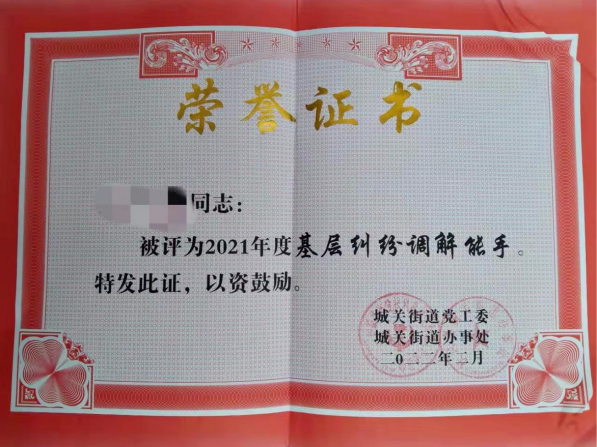 荣誉证书
同志：
被评为2021年度基层纠纷调解能手。
特发此证，以资鼓励。
城关街道党工委
城关街道办事处
二〇二二年二月